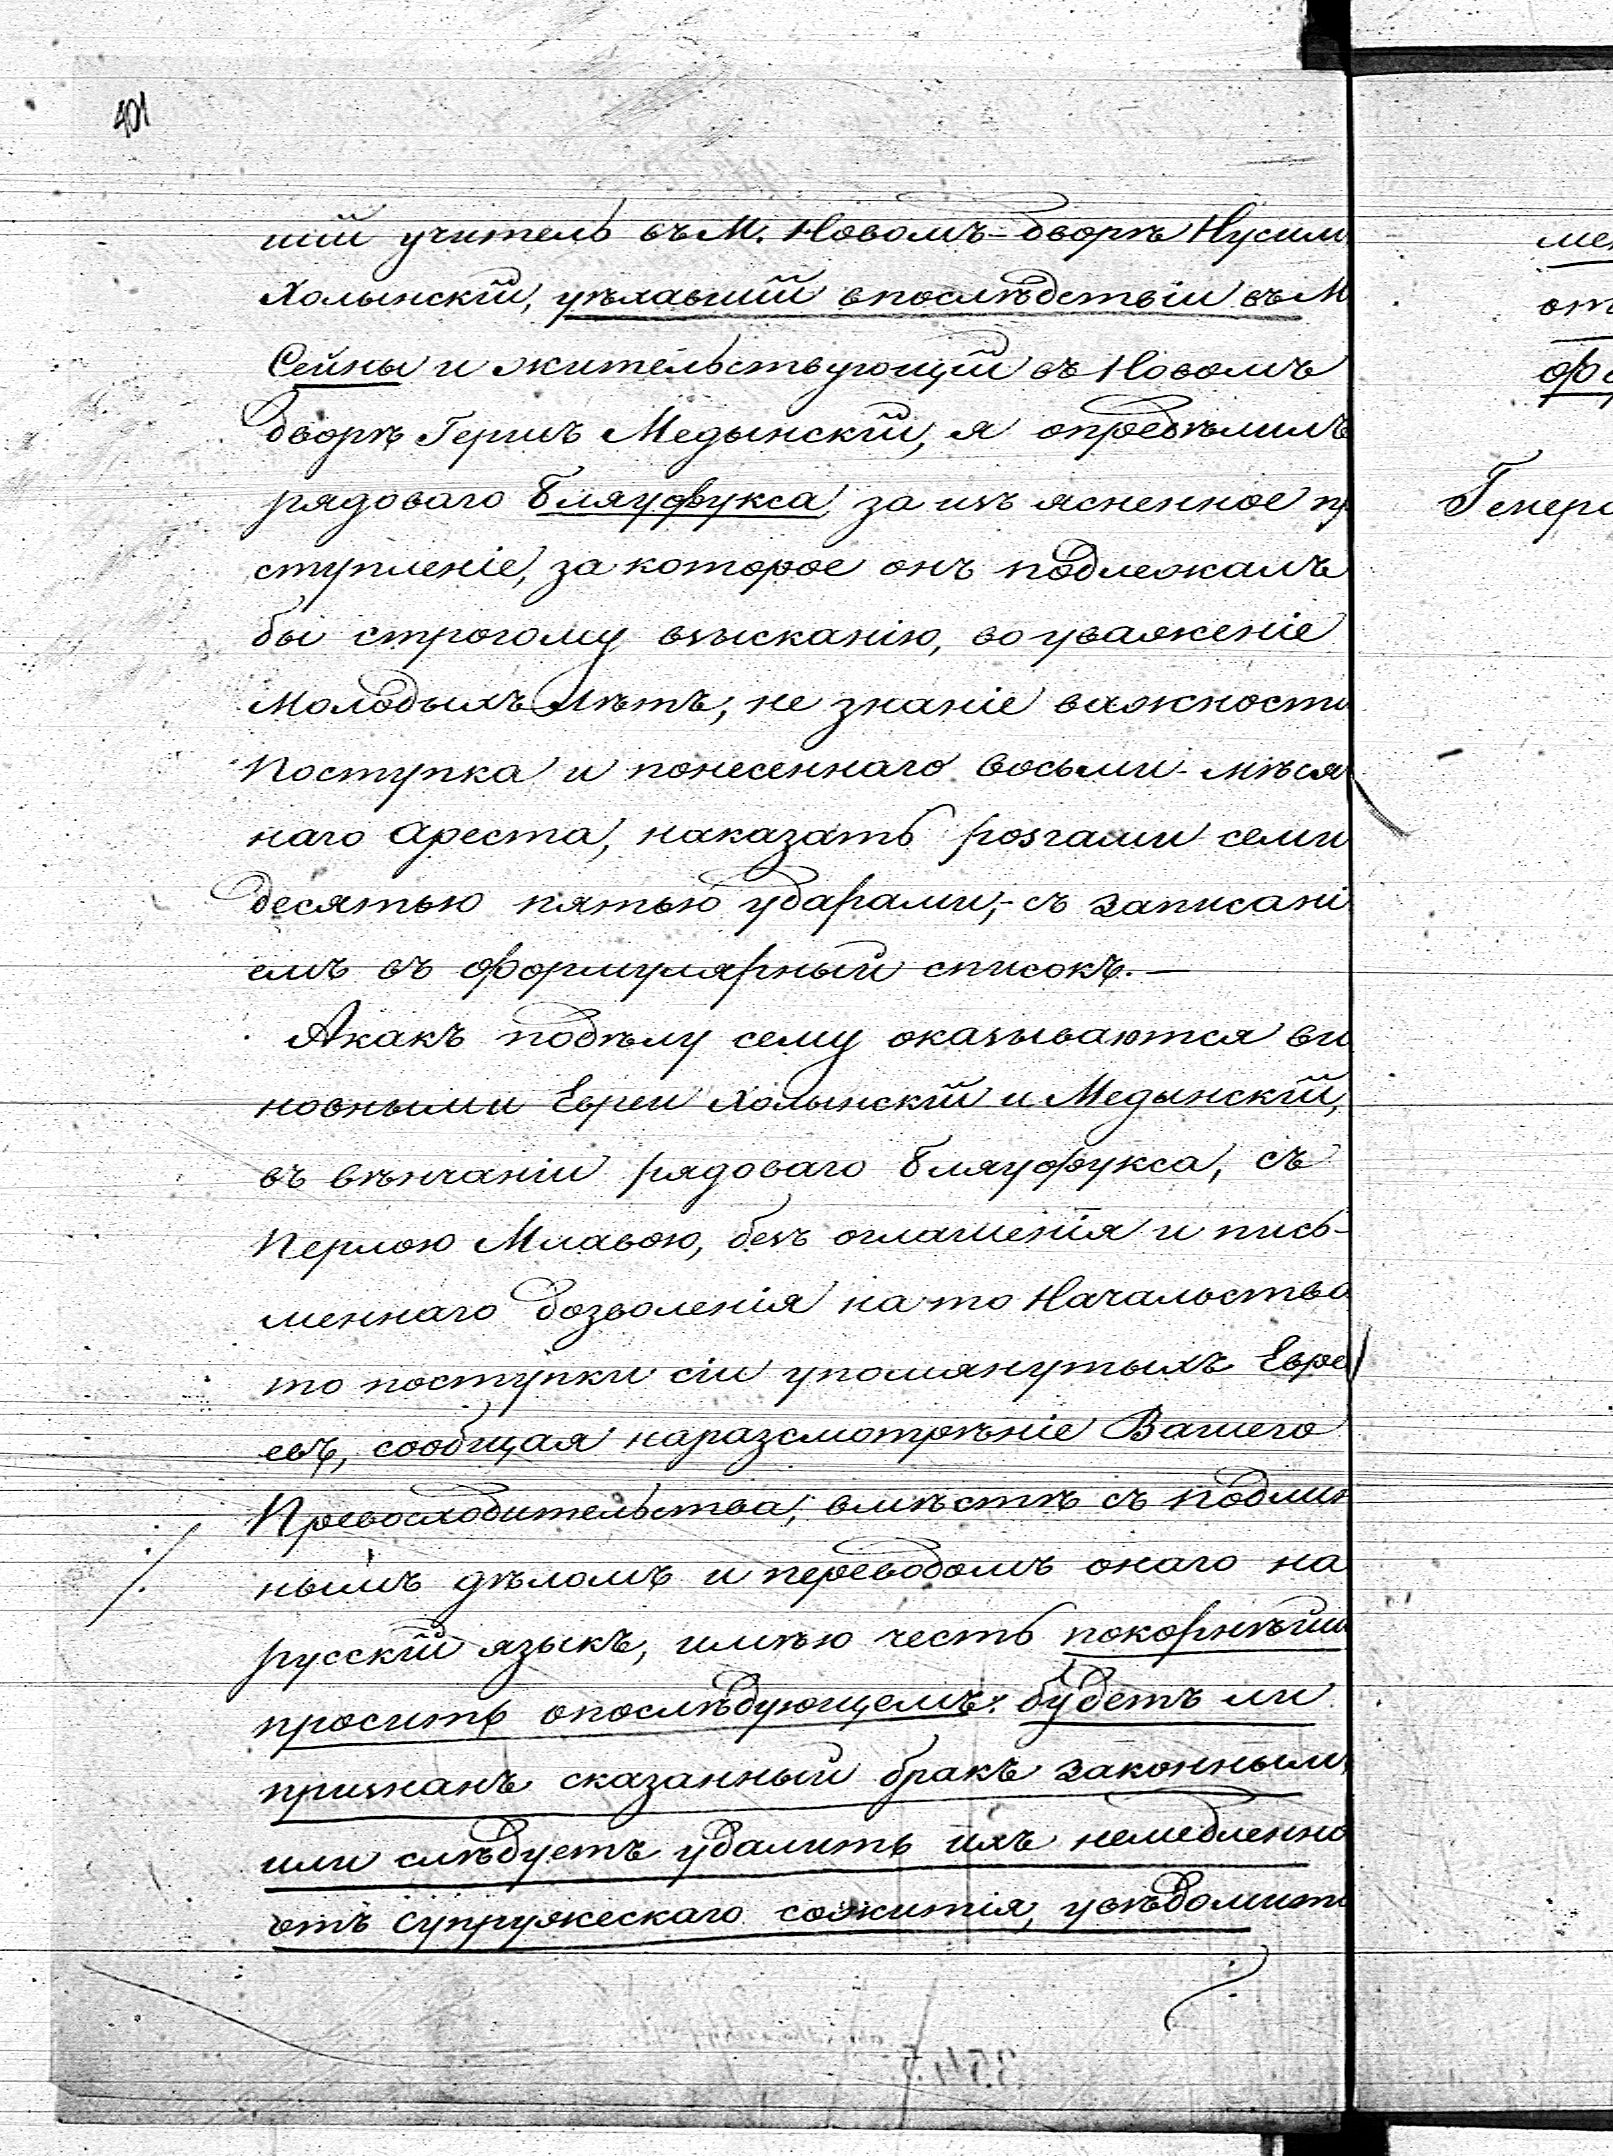 401
шій учитель въ М. Новомъ-дворѣ Нусим
Холынскій, уѣхавшій впослѣдствіи въ М
Сейны и жительствующій въ Новомъ
дворѣ Гершъ Медынскій, я опредѣлилъ
рядоваго Бляуфукса, за изъясненное пр
ступленіе, за которое онъ подлежалъ
бы строгому взысканію, во уваженіе
молодыхъ лѣтъ, не знаніе важности
поступка и понесеннаго восьми-мѣся
наго ареста, наказать розгами семи
десятью пятью ударами,- съ записані
емъ въ формулярный списокъ.—
Акакъ подѣлу сему оказываются ви
новными Евреи Холынскій и Медынскій,
въ вѣнчаніи рядоваго Бляуфукса, съ
Перлою Млавою, безъ оглашенія и пись-
меннаго дозволенія на то Начальства
то поступки сіи упомянутыхъ Евре
евъ, сообщая наразсмотрѣніе Вашего
Превосходительства, вмѣстѣ съ подлин
нымъ дѣломъ и переводомъ онаго на
русскій языкъ, имѣю честь покорнѣйш
просить опослѣдующемъ: будетъ ли
признанъ сказанный бракъ законным,
или слѣдуетъ удалить ихъ немедленно
отъ супружескаго сожитія, увѣдомить
мен
отъ
фо
Генера